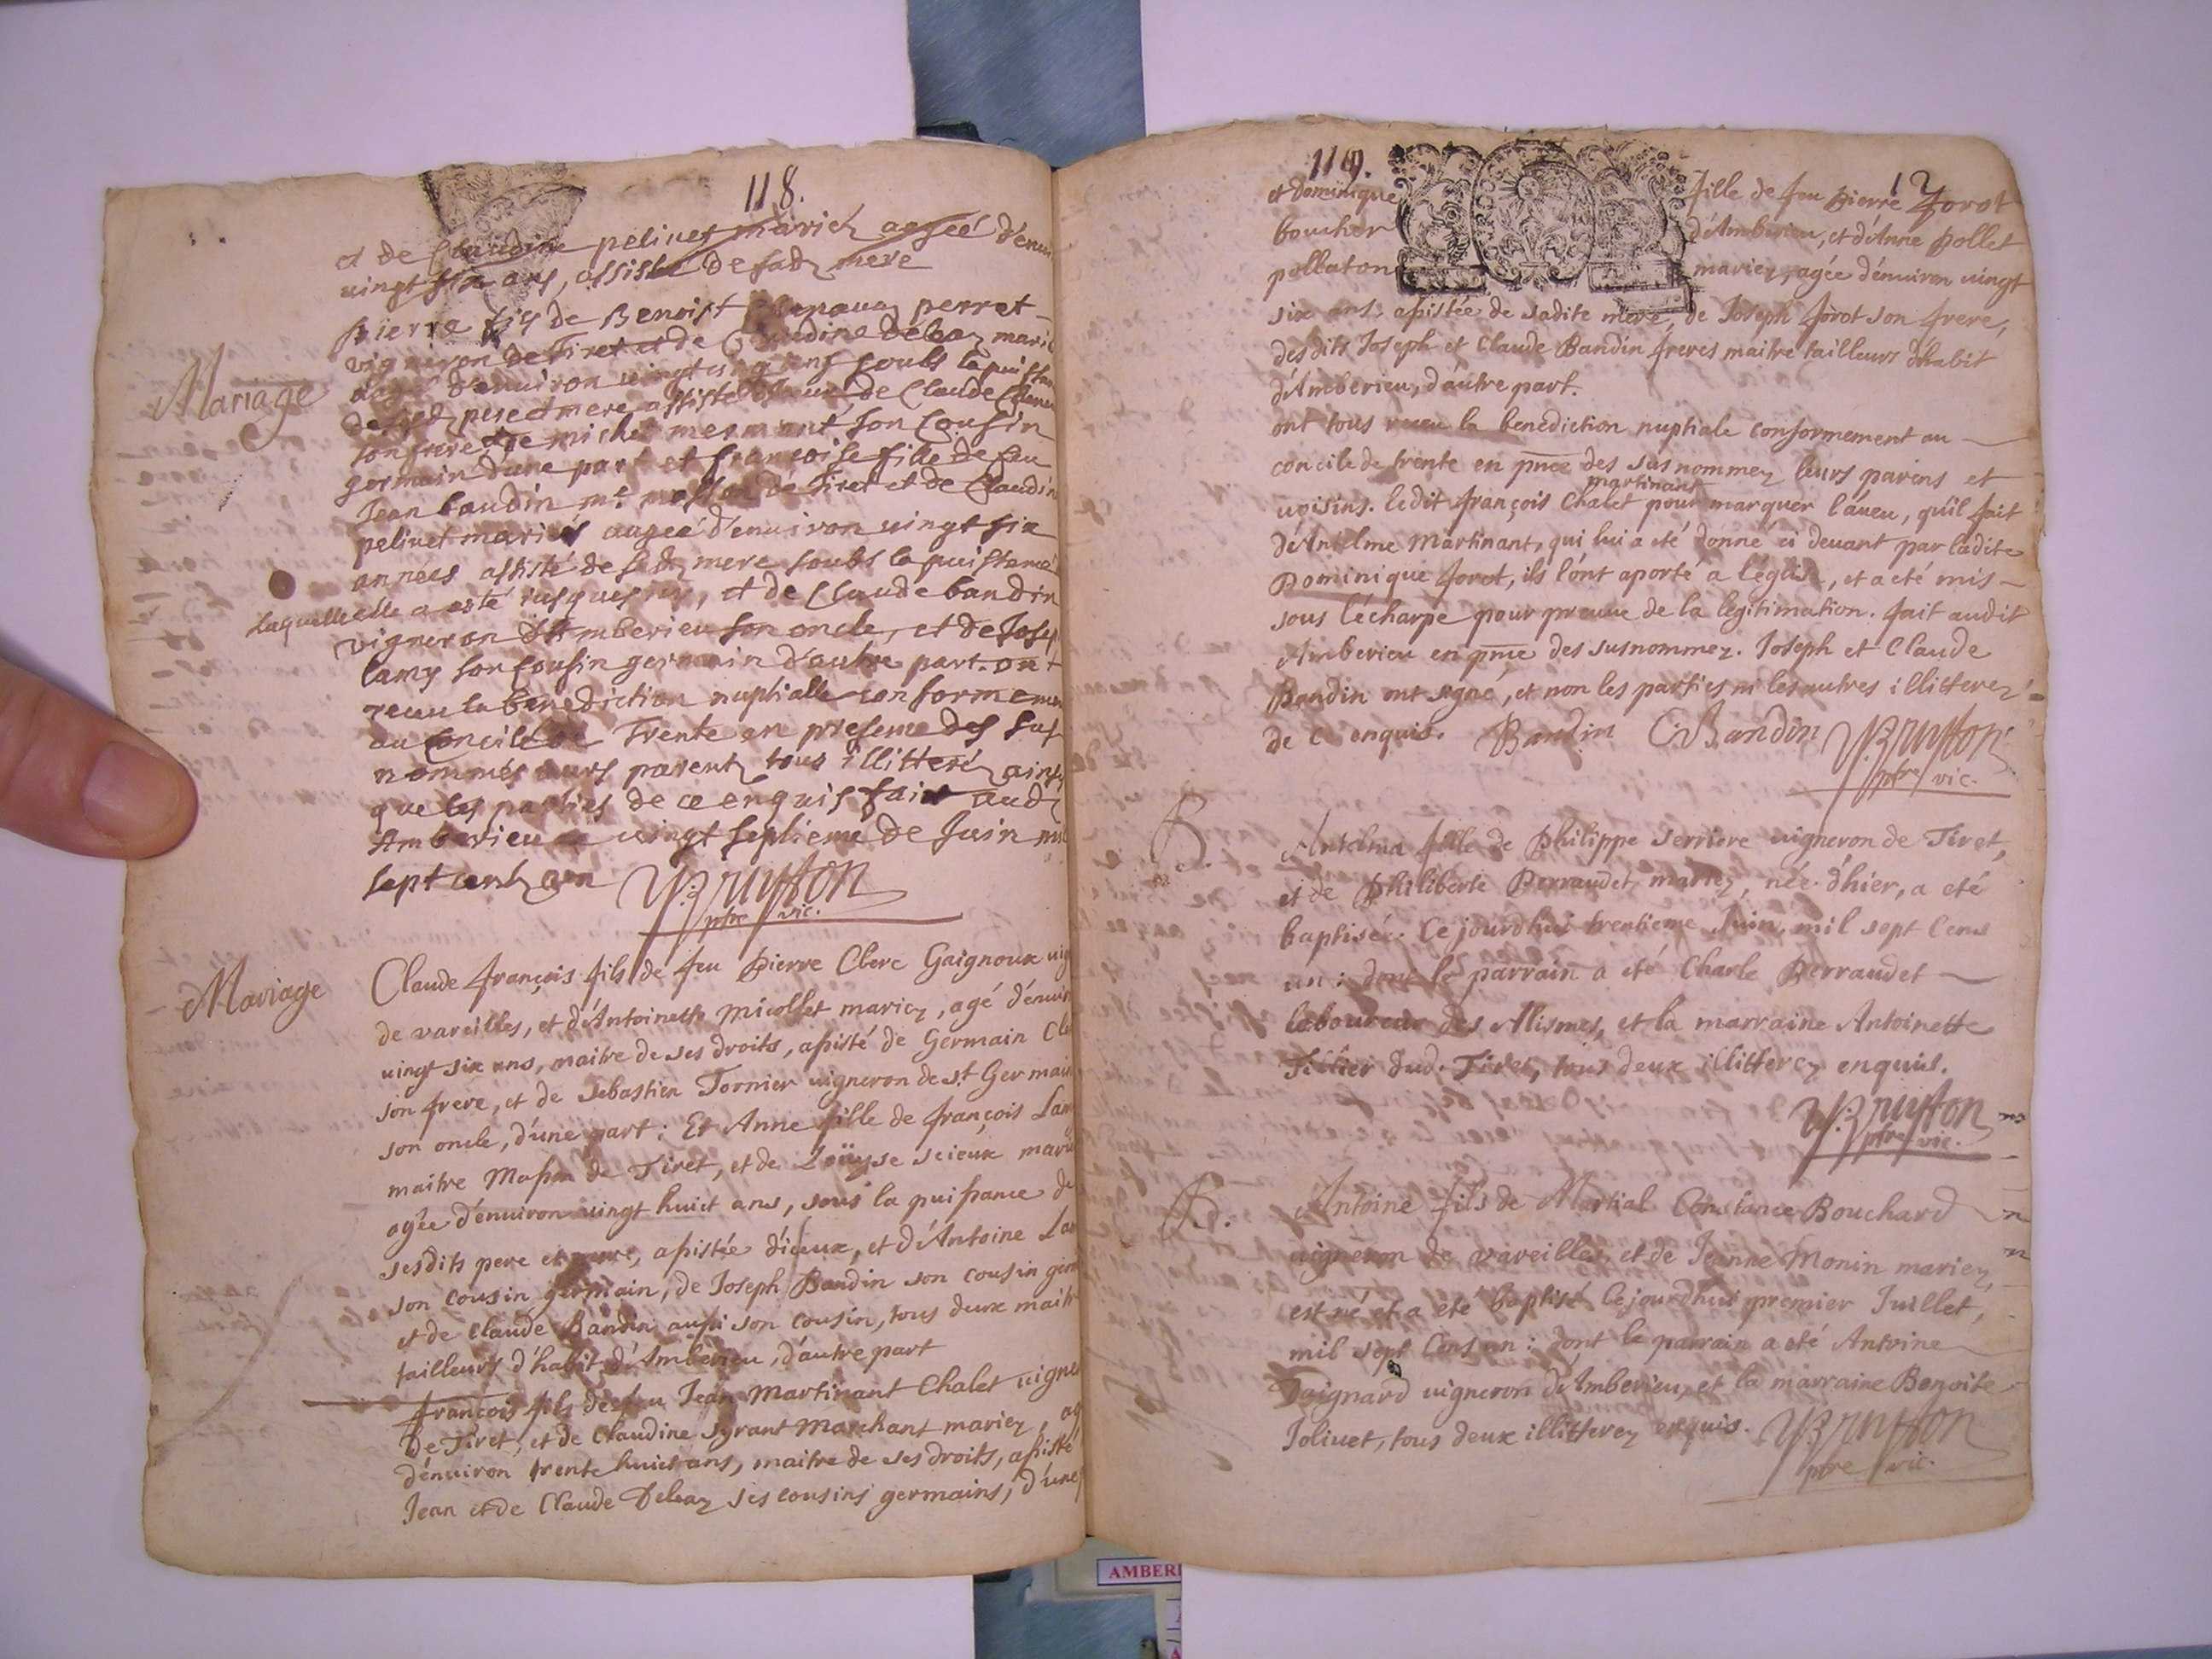 118.
et de Claudine pelivet mariez aagéé d'enui
vingt six ans, assisté de sad mere
Mariage
pierre fils de Benoist perret
vigneron de Tiret et de Claudine Debeaz mari
aagé d'enuiron vingt cinq ans soubs la puissan
desesd pere et mere assisté de Claude
son frere, et de michel mermant son Cousin
germain d'une part et francoise fille de feu
Jean baudin me masson de Tiret et de Claudin
pelivet mariés aagéé d'enuiron vingt six
années assisté de sad mere soubs la puissance
laquelle elle a esté jusques icy, et de Claude baudin
vigneron d'Amberieu son oncle, et de Josep
lamy son Cousin germain d'autre part. ont
receu la benediction nuptialle conformemen
au Concile de Trente en presence des sus
nommés leurs parentz tous illitteréz ainsy
que les parties de ce enquis fait aud
Amberieu ce vingt septieme de Juin mil
sept centz un Bruyson
ptre vic.
Mariage
Claude françois fils de feu Pierre Clerc Gaignoux vig
de vareilles, et d'Antoinette Micollet mariez, agé d'enuir
vingt six ans, maitre de ses droits, assisté de Germain Cle
son frere, et de Sebastien Tornier vigneron de st Germain
son oncle, d'une part; Et Anne fille de françois Lam
maitre Masson de Tiret, et de Loüyse scieux marie
agée d'enuiron vingt huict ans, sous la puissance de
sesdits pere et mere, assistée d'iceux, et d'Antoine Lam
son cousin germain, de Joseph Baudin son cousin germ
et de Claude Baudin aussi son cousin, tous deux maitr
tailleurs d'habit d'Amberieu, d'autre part
françois fils de feu Jean Martinant Chalet vigne
de Tiret, et de Claudine Syrant Marchant mariez, ag
d'enuiron trente huict ans, maitre de ses droits, assisté
Jean et de Claude Debeaz ses cousins germains, d'une
119. 12
et Dominique fille de feu Pierre Jorot
boucher d'Amberieu, et d'Anne Pollet
pollaton mariez, agée d'enuiron vingt
six ans, assistée de sadite mere, de Joseph Jorot son frere,
desdits Joseph et Claude Baudin freres maitre tailleurs d'habit
d'Amberieu, d'autre part.
ont tous receu la benediction nuptiale conformement au
concile de trente en pnce des susnommez leurs parens et
martinant
voisins. ledit françois Chalet pour marquer l'aueu, qu'il fait
d'Antelme Martinant, qui lui a été donné ci deuant par ladite
Dominique Jorot, ils l'ont aporté a l'église, et a eté mis
sous l'écharpe pour preuue de la legitimation. fait audit
Amberieu en pnce des susnommez. Joseph et Claude
Baudin ont signé, et non les parties ni les autres illitterez
de ce enquis. Baudin C Baudin Bruyson
ptre vic.
B.
Antelma fille de Philippe Serriere vigneron de Tiret,
et de Philiberte Perraudet mariez, née d'hier, a eté
baptisée. Ce jourd'hui trentieme Juin, mil sept Cens
un: dont le parrain a eté Charle Perraudet
laboureur des Allismes, et la marraine Antoinette
Tillier dud. Tiret, tous deux illitterez enquis.
Bruyson
ptre vic.
B.
Antoine fils de Martial Constance Bouchard
vigneron de vareilles, et de Jeanne Monin mariez,
est né et a eté baptisé Ce jourd'hui premier Juillet,
mil sept Cens un: dont le parrain a eté Antoine
Goignard vigneron d'Amberieu, et la marraine Benoite
Joliuet, tous deux illitterez enquis. Bruyson
ptre vic.
AMBERI